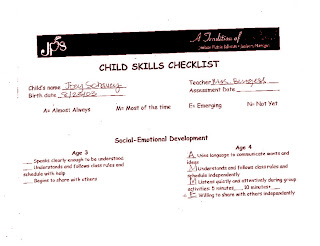 jps
A Tradition of
CHILD SKILLS CHECKLIST
Child's name
Teacher
Birth date
Assessment Date
A= Almost Always M= Most of the time E= Emerging N= Not Yet
Social-Emotional Development
Age 3
Age 4
Speaks clearly enough to be understood
Understands and follows class rules and
schedule with help
Begins to share with others
A Uses language to communicate wants and
ideas
M Understands and follows class rules and
schedule independently
Listens quietly and attentively during group
activities: 5 minutes 10 minutes
E Willing to share with others independently